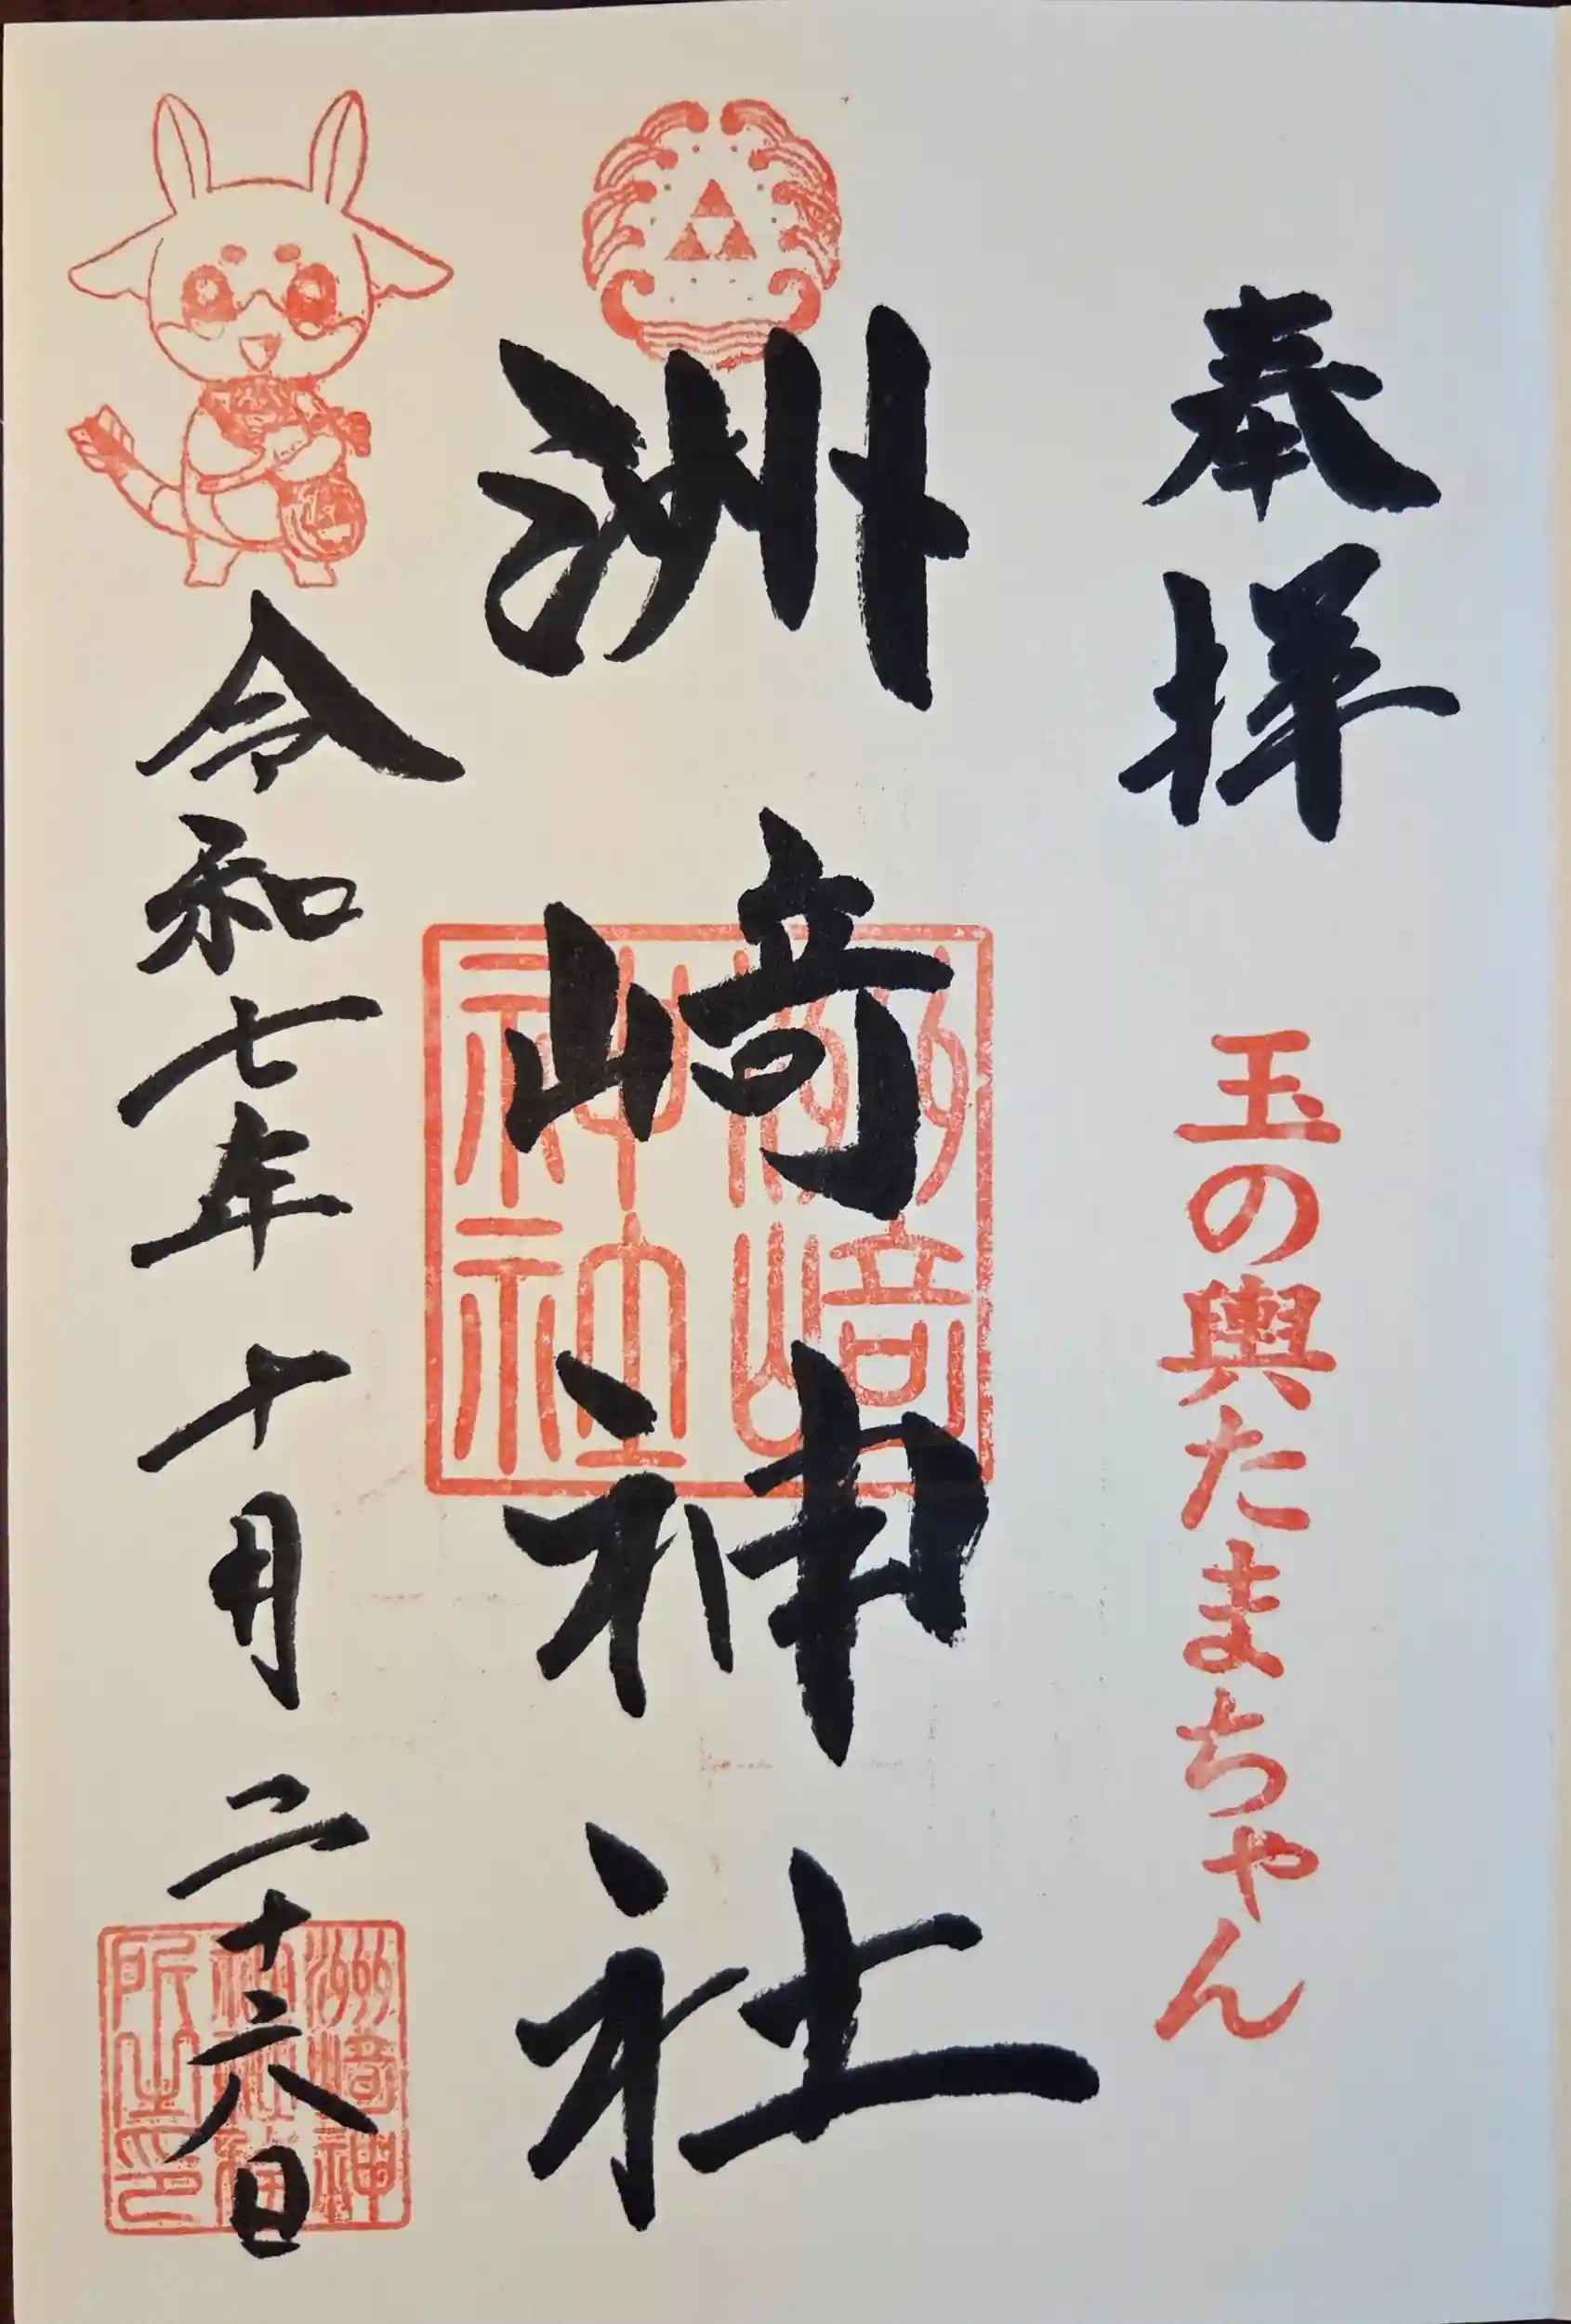 奉拝
玉の輿たまちゃん
洲崎神社
洲﨑神社
令和七年十月二十六日
洲﨑神社社務所之印